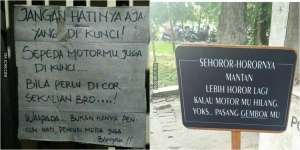 JANGAN HATINYA AJA
YANG DI KUNCI!
SEPEDA MOTORMU JUGA
DI KUNCI...
BILA PERLU DI COR
SEKALIAN BRO....!
WASPADA... BUKAN HANYA PEN
CURI HATI, PENCURI MOTOR JUGA
BANYAK!!
SEHOROR-HORORNYA
MANTAN
LEBIH HOROR LAGI
KALAU MOTOR MU HILANG.
YOKS.. PASANG GEMBOK MU